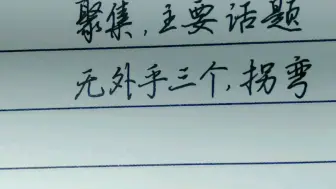 聚集，主要话题
无外乎三个，拐弯